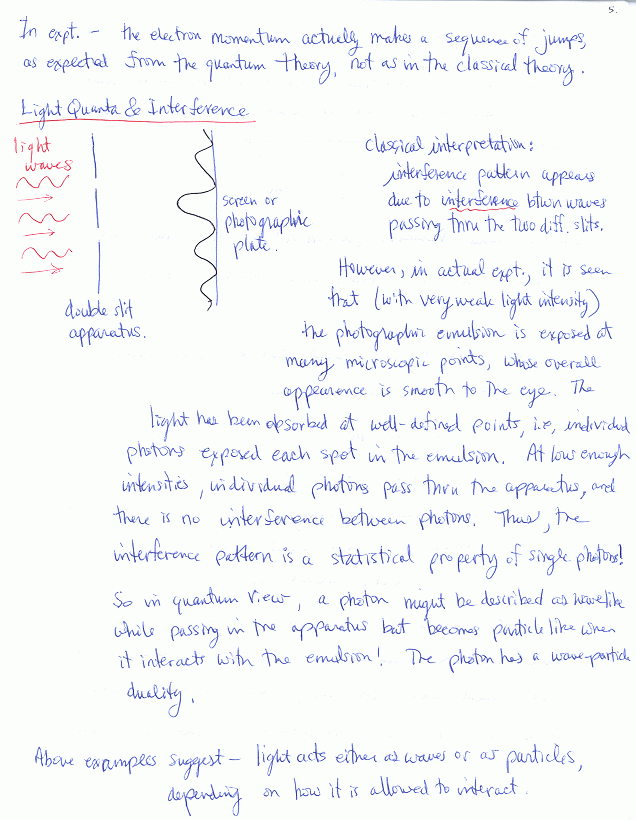 5.
In expt. - the electron momentum actually makes a sequence of jumps,
as expected from the quantum theory, not as in the classical theory.
Light Quanta & Interference
light
waves
screen or
photographic
plate.
double slit
apparatus.
Classical interpretation:
interference pattern appears
due to interference btwn waves
passing thru the two diff. slits.
However, in actual expt., it is seen
that (with very weak light intensity)
the photographic emulsion is exposed at
many microscopic points, whose overall
appearence is smooth to the eye. The
light has been absorbed at well-defined points, i.e, individual
photons exposed each spot in the emulsion. At low enough
intensities, individual photons pass thru the apparatus, and
there is no interference between photons. Thus, the
interference pattern is a statistical property of single photons!
So in quantum view, a photon might be described as wavelike
while passing in the apparatus but becomes particle like when
it interacts with the emulsion! The photon has a wave-particle
duality.
Above exampels suggest - light acts either as waves or as particles,
depending on how it is allowed to interact.